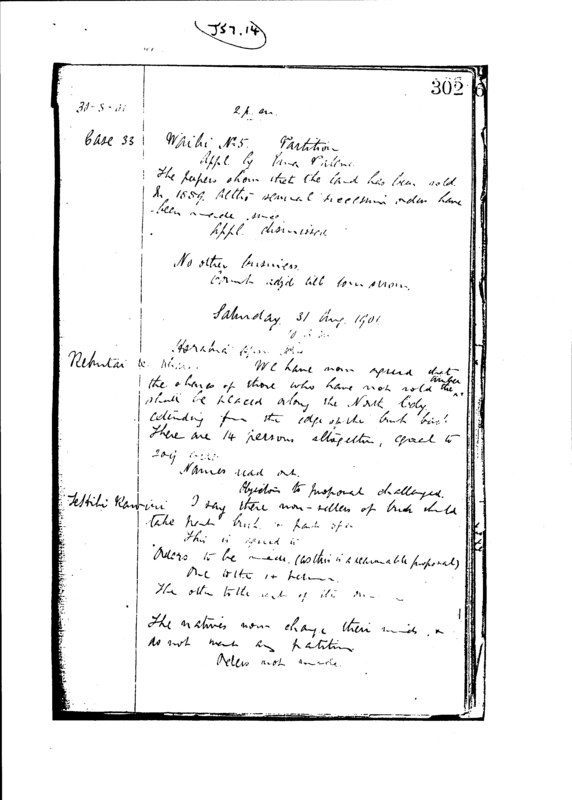 J57.14
302
30-8-01 2 p.m.
Case 33 Waihi No 5. Partition
Appl. by
The papers show that the land has been sold
in 1889. Altho several succession orders have
been made since
Appl. dismissed
No other business.
Court adjd till tomorrow.
Saturday 31 Aug 1901
10 a.m.
We have now agreed that
the shares of those who have not sold timber
shall be placed along the North bdy
extending from the edge of the bush back
There are 14 persons altogether, equal to
Names read out.
Objections to proposal challenged.
I say these non-sellers of bush should
take part bush & part open
This is agreed to
Orders to be made. (as this is a reasonable proposal)
One to the 14 persons.
The other to the rest of the
The natives now change their minds &
do not want any partition
Orders not made.